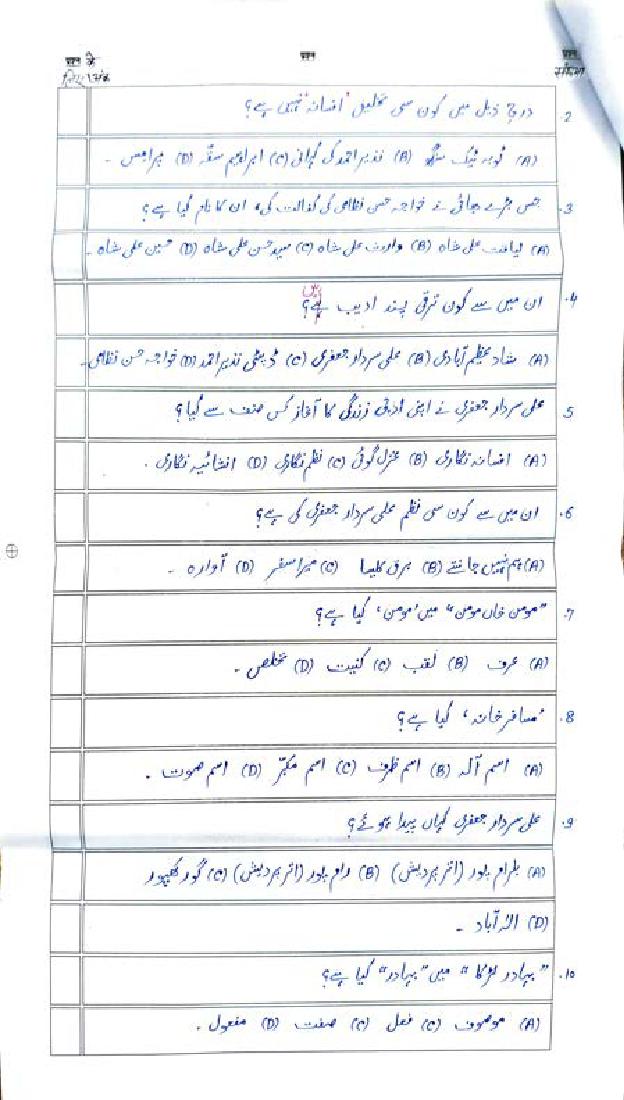 प्रश्न के
लिए अंक
प्रश्न
प्रश्न
संख्या
2. درج ذیل میں کون سی تخلیق "افسانہ" نہیں ہے؟
(A) ٹوبہ ٹیک سنگھ (B) نذیر احمد کی کہانی (C) ابراہیم سقہ (D)
3. جس بڑے بھائی نے خواجہ حسن نظامی کی کفالت کی، ان کا نام کیا ہے؟
(A) لیاقت علی شاہ (B) وارث علی شاہ (C) سید حسن علی شاہ (D) حسین علی شاہ ۔
4. ان میں سے کون ترقی پسند ادیب ہیں؟
(A) شاد عظیم آبادی (B) علی سردار جعفری (C) ڈپٹی نذیر احمد (D) خواجہ حسن نظامی ۔
5. علی سردار جعفری نے اپنی ادبی زندگی کا آغاز کس صنف سے کیا؟
(A) افسانہ نگاری (B) غزل گوئی (C) نظم نگاری (D) انشائیہ نگاری ۔
6. ان میں سے کون سی نظم علی سردار جعفری کی ہے؟
(A) ہم نہیں جانتے (B) برق کلیسا (C) میرا سفر (D) آوارہ ۔
7. "مومن خاں مومن" میں 'مومن' کیا ہے؟
(A) عرف (B) لقب (C) کنیت (D) تخلص ۔
8. 'مسافر خانہ' کیا ہے؟
(A) اسم آلہ (B) اسم ظرف (C) اسم مکبّر (D) اسم صوت ۔
9. علی سردار جعفری کہاں پیدا ہوئے؟
(A) بلرام پور (اتر پردیش) (B) رام پور (اتر پردیش) (C) گورکھپور
(D) الہ آباد ۔
10. "بہادر لڑکا" میں "بہادر" کیا ہے؟
(A) موصوف (C) فعل (C) صفت (D) مفعول ۔